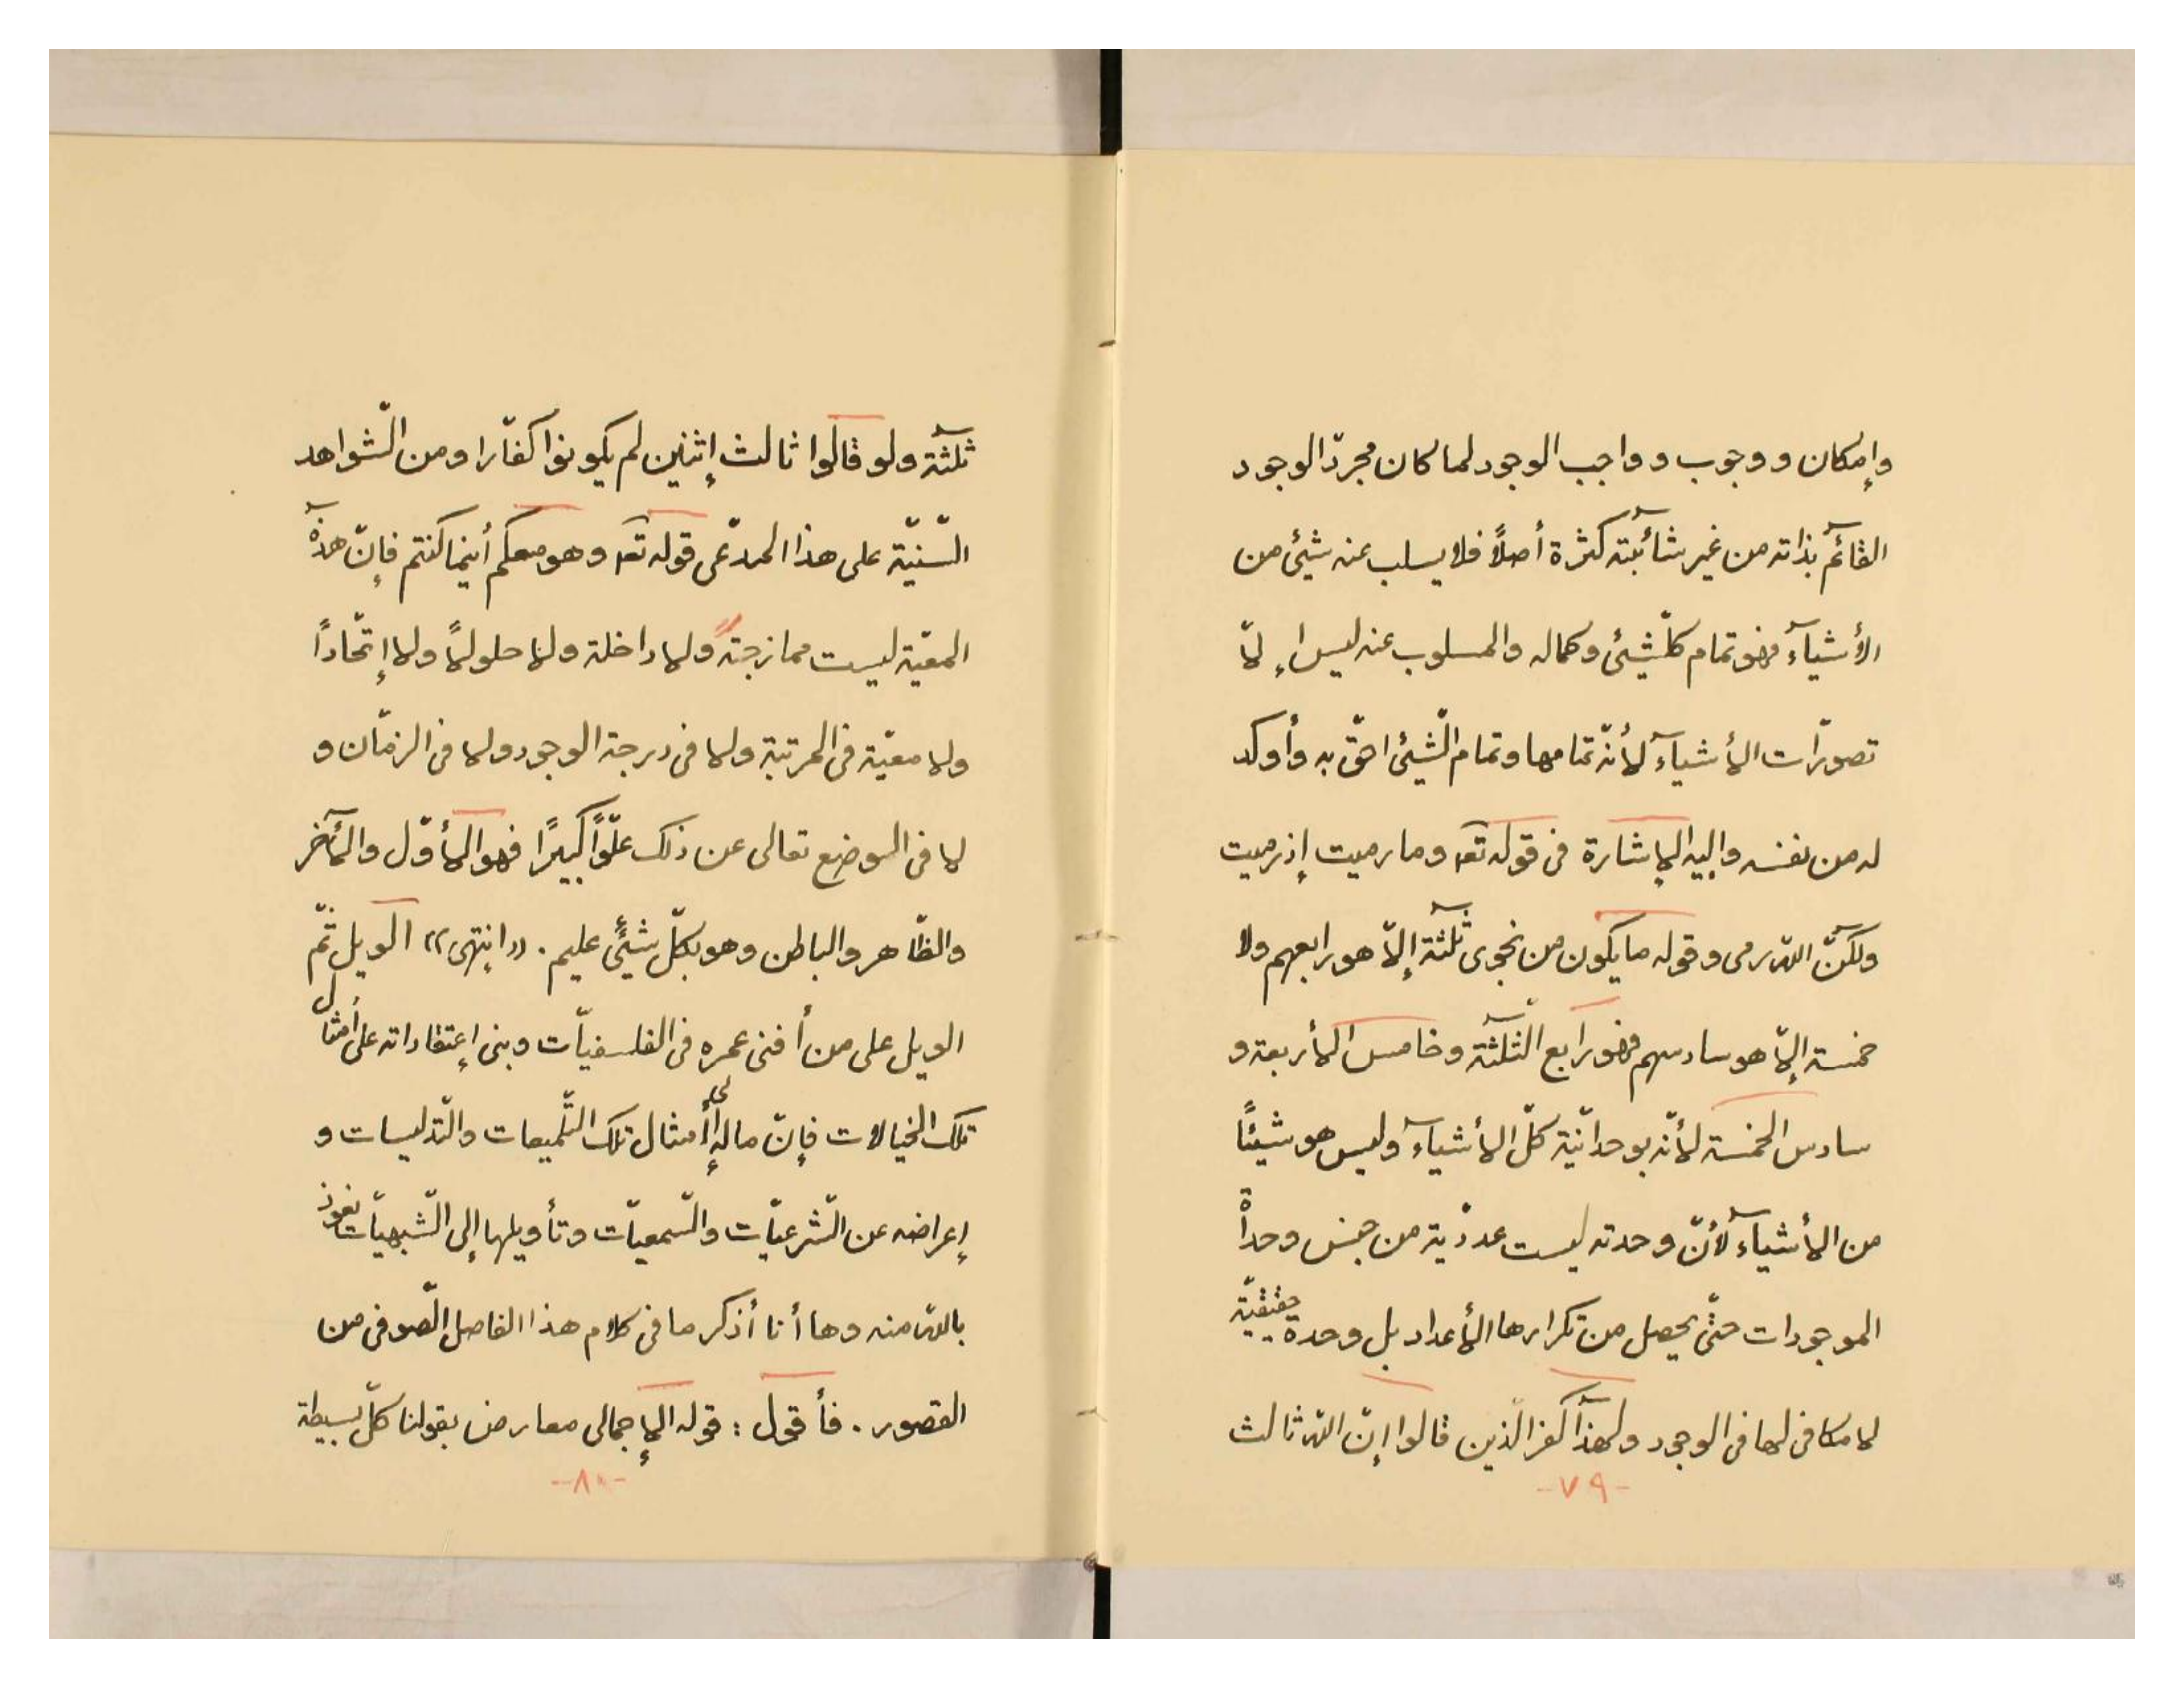 وإمكان ووجوب وواجب الوجود لما كان مجرّد الوجود
القائم بذاته من غير شائبته كثرة أصلاً فلا يسلب عنه شيئ من
الأشيآء فهو تمام كلّ شيئ وكماله والمسلوب عنه ليس إلّا
تصوّرات الأشيآء لأنّه تمامها وتمام الشّيئ احقّ به وأوكد
له من نفسه وإليه الإشارة في قوله تعـ وما رميت إذ رميت
ولكنّ اللّه رمى وقوله ما يكون من نجوى ثلثة إلّا هو رابعهم ولا
خمسة إلّا هو سادسهم فهو رابع الثّلثة وخامس الأربعة و
سادس الخمسة لأنّه بوحدانيّة كلّ الأشيآء وليس هو شيئاً
من الأشيآء لأنّ وحدته ليست عدديّة من جنس وحداة
الموجودات حتّى يحصل من تكرارها الأعداد بل وحدة حقيقيّة
لا مكافى لها في الوجود ولهذا كفر الّذين قالوا إنّ اللّه ثالث
-٧٩-
ثلثة ولو قالوا ثالث إثنين لم يكونوا كفّارا ومن الشّواهد
السّنيّة على هذا المدّعى قوله تعـ وهو معكم أينما كنتم فإنّ هذه
المعيّة ليست ممازجة ولا داخلة ولا حلولاً ولا إتّحاداً
ولا معيّة في المرتبة ولا في درجة الوجود ولا في الزمّان و
لا في الوضع تعالى عن ذلك علّواً كبيرًا فهو الأوّل والآخر
والظّاهر والباطن وهو بكلّ شيئٍ عليم . «إنتهى» الويل ثمّ
الويل على من أفنى عمره في الفلسفيّات وبنى إعتقاداته على أمثال
تلك الخيالات فإنّ ماله إلى أمثال تلك التّلميعات والتّدليسات و
إعراضه عن الشّرعيّات والسّمعيّات وتأويلها إلى الشّبهيّات نعوذ
باللّه منه وها أنا أذكر ما في كلام هذا الفاصل الصّوفى من
القصور . فأقول : قوله الإجمالى معارض بقولنا كلّ بسيطة
-٨٠-